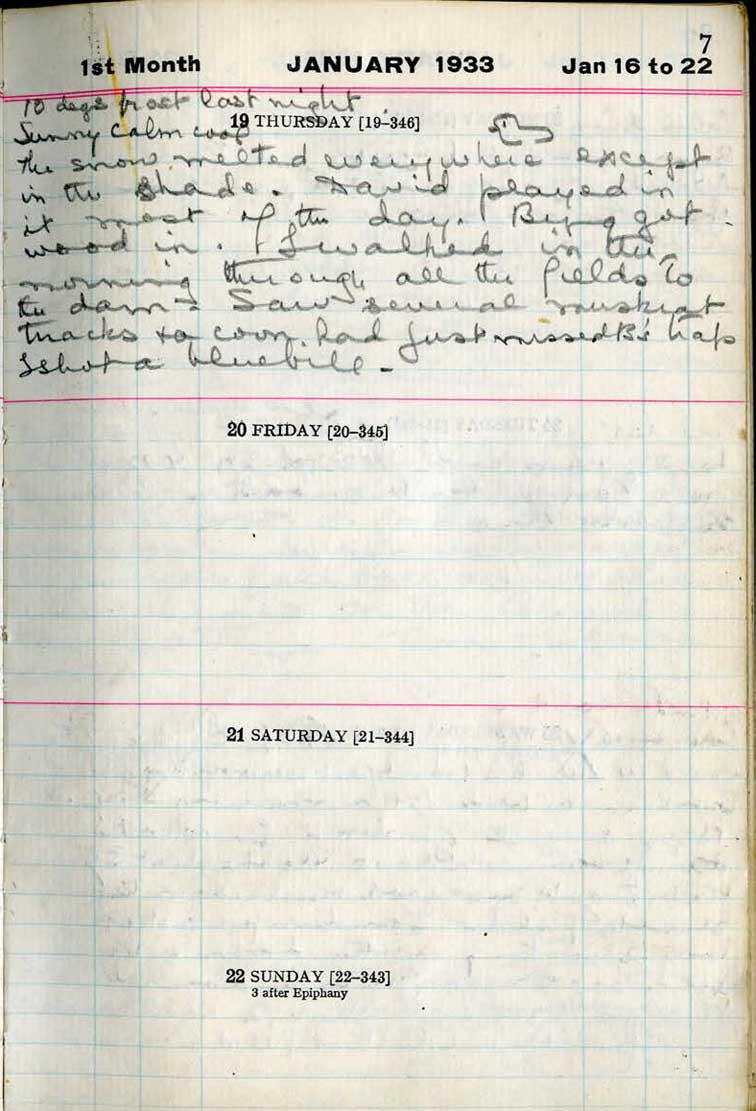 7
1st Month JANUARY 1933 Jan 16 to 22
10 degs frost last night.
19 THURSDAY [19–346]
Sunny Calm cool
the snow melted everywhere except
in the shade. David played in
it most of the day. Byng got
wood in. I walked in the
morning through all the fields to
the dam - Saw several muskrat
tracks & a coon. had just missed B's traps
I shot a bluebill -
20 FRIDAY [20–345]
21 SATURDAY [21–344]
22 SUNDAY [22–343]
3 after Epiphany